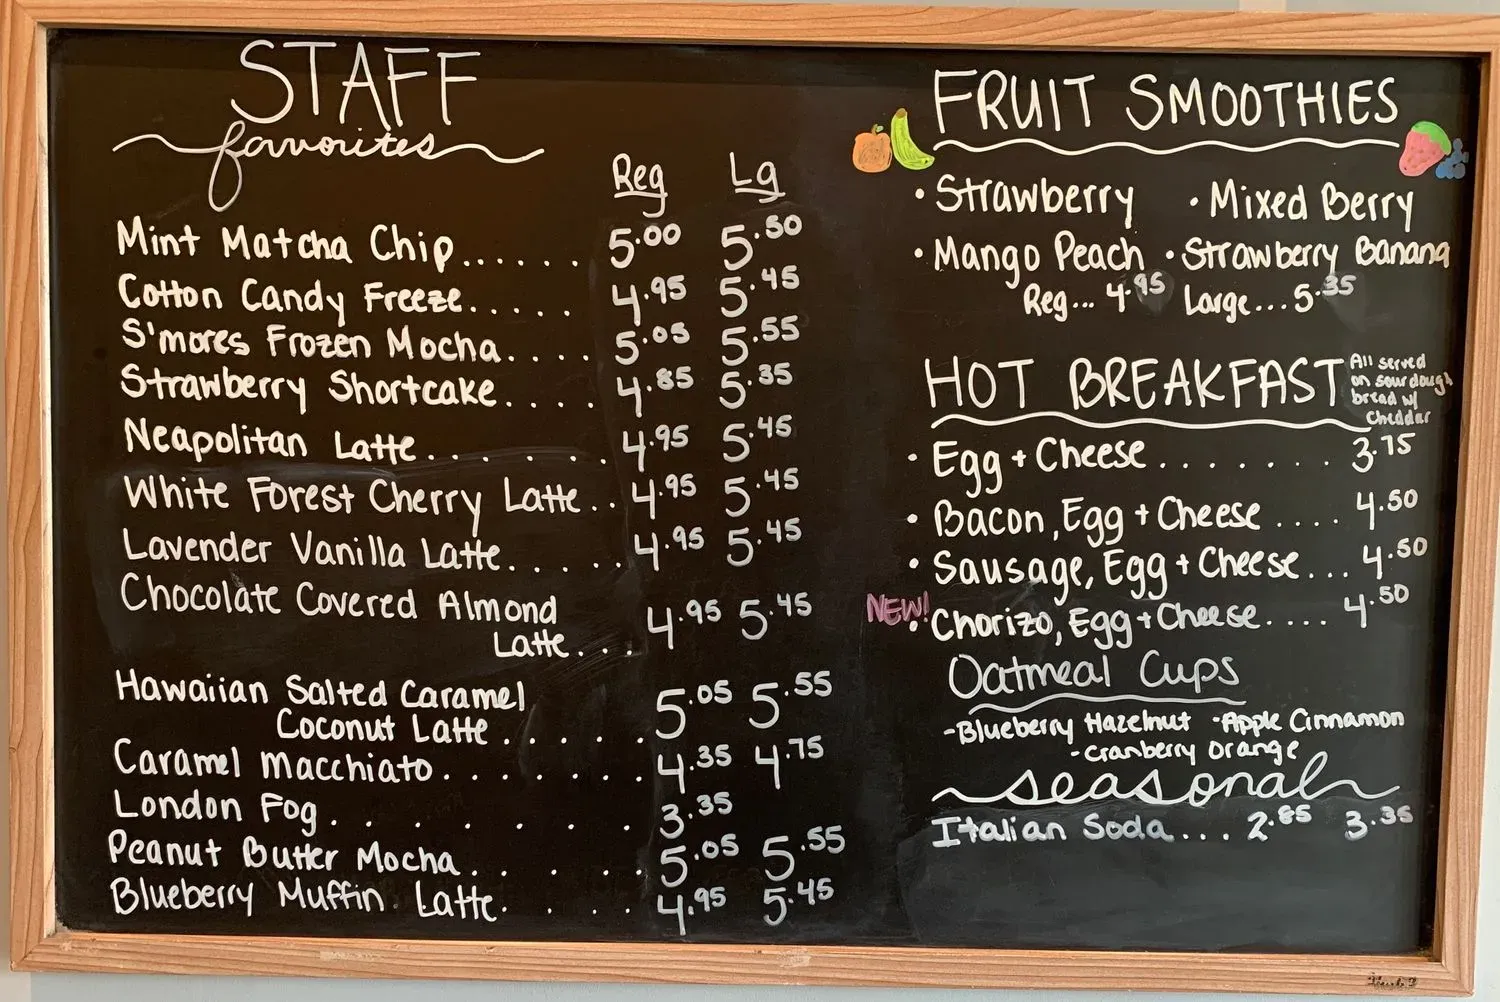 STAFF
favorites
Reg Lg
Mint Matcha Chip...... 5.00 5.50
Cotton Candy Freeze..... 4.95 5.45
S'mores Frozen Mocha.... 5.05 5.55
Strawberry Shortcake.... 4.85 5.35
Neapolitan Latte...... 4.95 5.45
White Forest Cherry Latte.. 4.95 5.45
Lavender Vanilla Latte...... 4.95 5.45
Chocolate Covered Almond
Latte... 4.95 5.45
Hawaiian Salted Caramel
Coconut Latte...... 5.05 5.55
Caramel Macchiato........ 4.35 4.75
London Fog........ 3.35
Peanut Butter Mocha..... 5.05 5.55
Blueberry Muffin Latte.... 4.95 5.45
FRUIT SMOOTHIES
• Strawberry • Mixed Berry
• Mango Peach • Strawberry Banana
Reg... 4.95 Large... 5.35
HOT BREAKFAST
All served
on sourdough
bread w/
Cheddar
• Egg + Cheese....... 3.75
• Bacon, Egg + Cheese.... 4.50
• Sausage, Egg + Cheese... 4.50
NEW! • Chorizo, Egg + Cheese.... 4.50
Oatmeal Cups
-Blueberry Hazelnut -Apple Cinnamon
-Cranberry Orange
seasonal
Italian Soda... 2.85 3.35